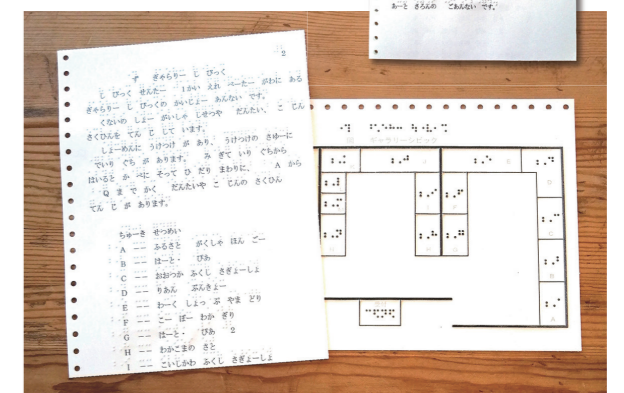 あーと さろんの ごあんない です。
2
ず ぎゃらりー し びっく
し びっく せんたー 1かい えれ べーたー がわに ある
ぎゃらりー し びっくの かいじょー あんない です。
くないの しょー がいしゃ じせつや だんたい、 こ じん
さくひんを てん じ して います。
しょーめんに うけつけ が あり、 うけつけの さゆーに
でいり ぐち が あります。 み ぎて いり ぐちから
はいると か べに そって ひ だり まわりに、 A から
Q ま で かく だんたいや こ じんの さくひん
てん じ が あります。
ちゅーき せつめい
A ―― ふるさと がくしゃ ほん ごー
B ―― はーと・ ぴあ
C ―― おおつか ふくし さぎょーしょ
D ―― りあん ぶんきょー
E ―― わーく しょっ ぷ やま どり
F ―― こー ぽー わか ぎり
G ―― はーと・ ぴあ 2
H ―― わかこまの さと
I ―― こいしかわ ふくし さぎょーしょ
図 ギャラリーシビック